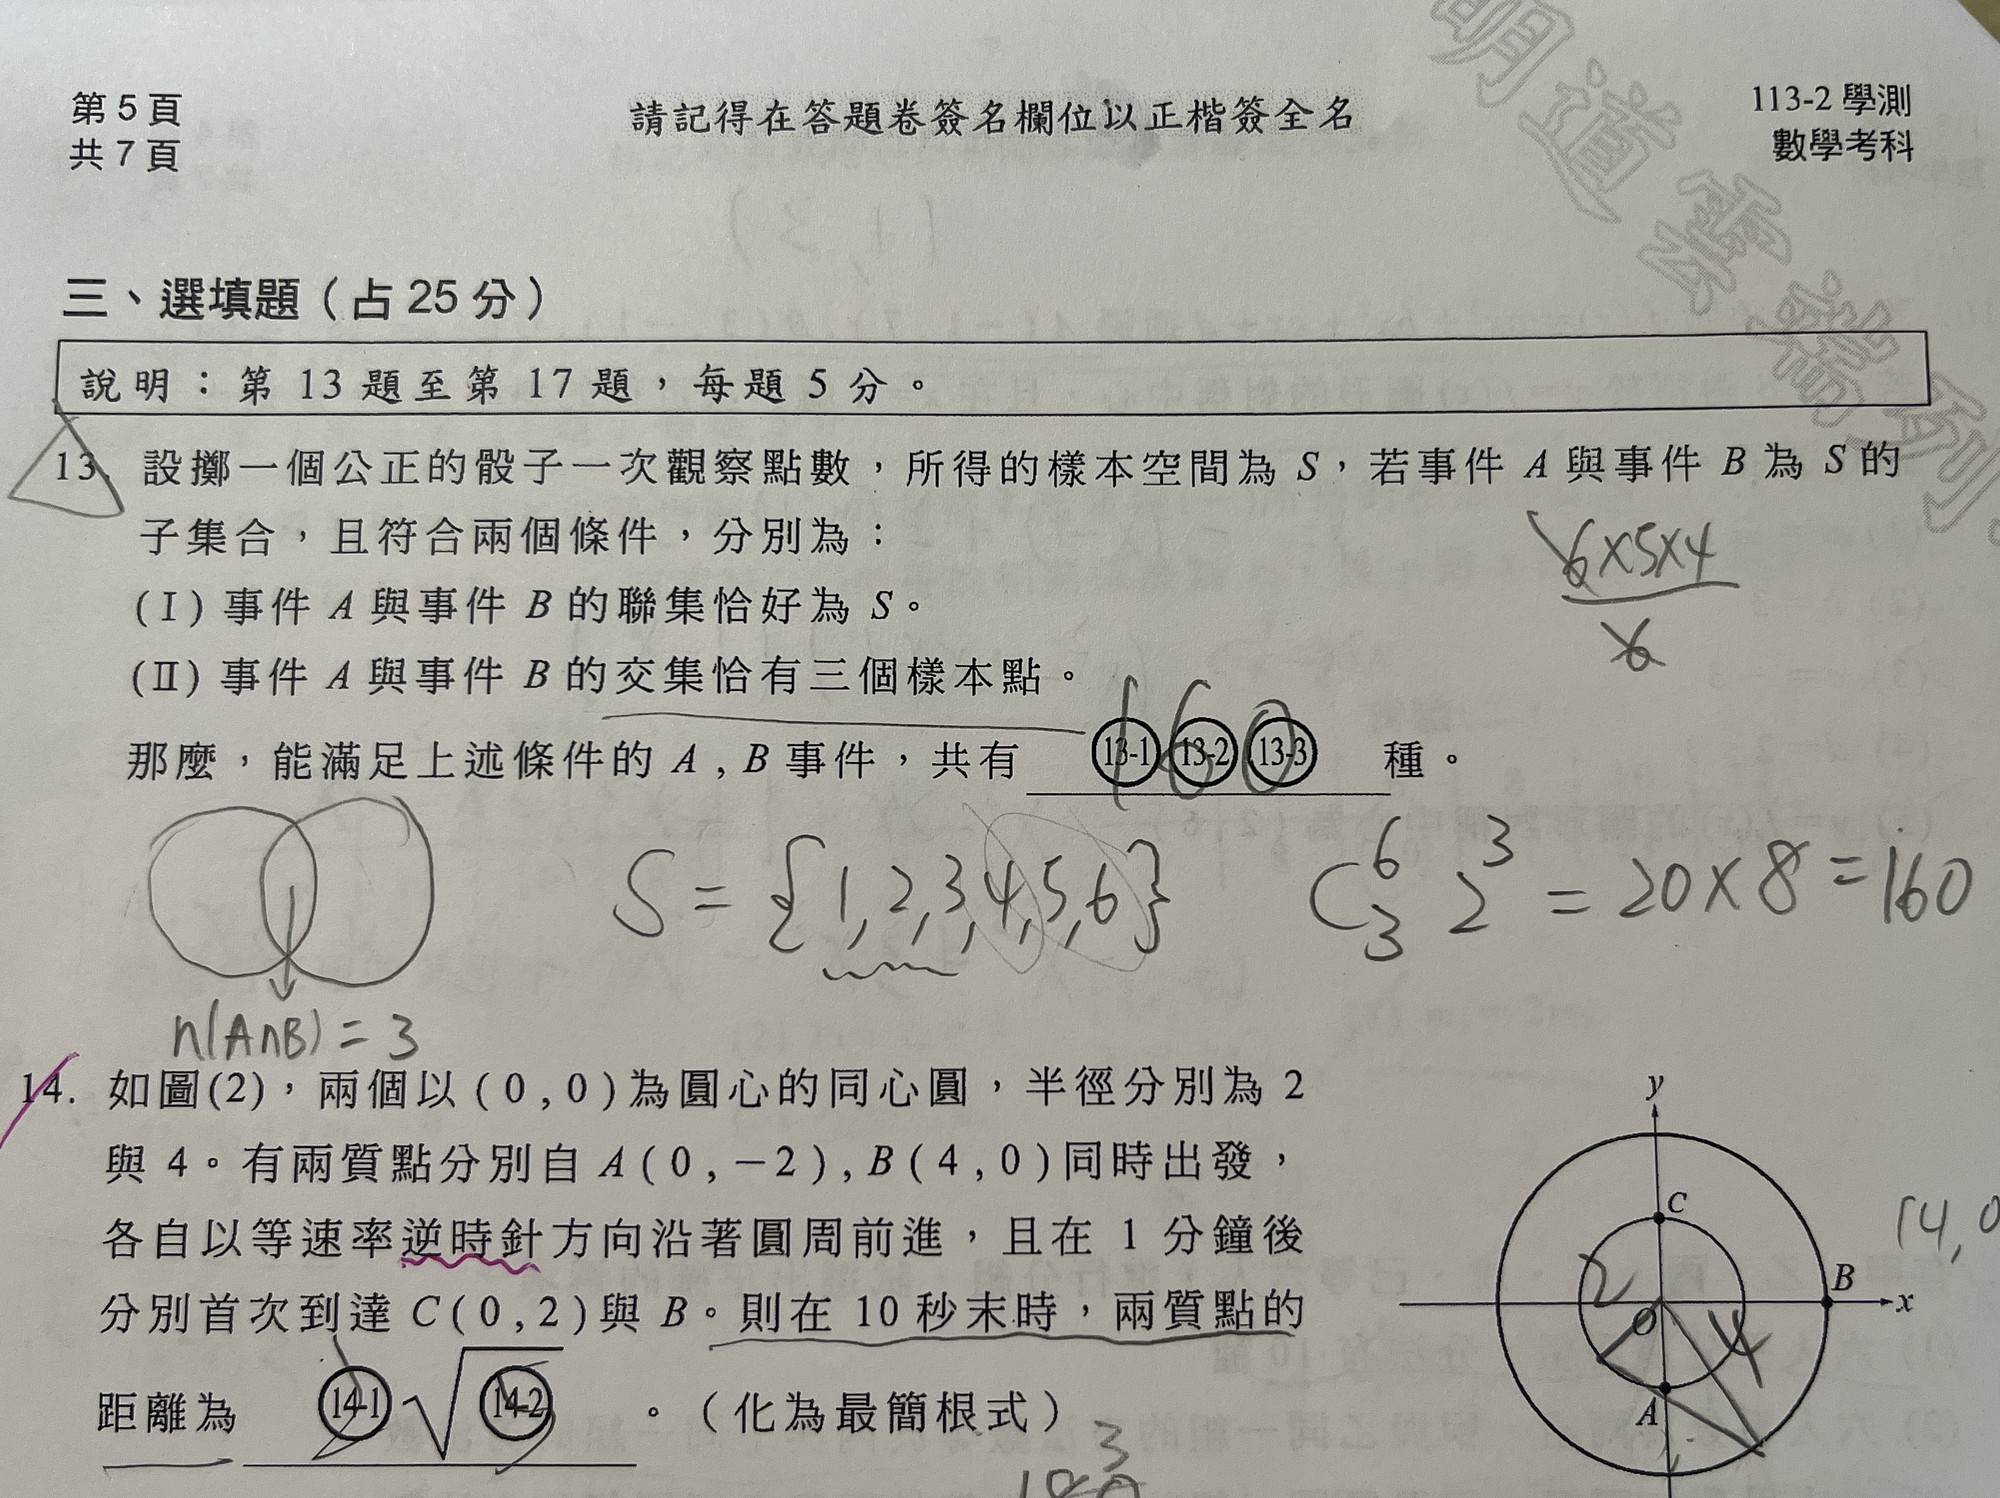 第 5 頁
共 7 頁
請記得在答題卷簽名欄位以正楷簽全名
113-2 學測
數學考科
明道雲端列
三、選填題（占 25 分）
說明：第 13 題至第 17 題，每題 5 分。
13. 設擲一個公正的骰子一次觀察點數，所得的樣本空間為 S，若事件 A 與事件 B 為 S 的
子集合，且符合兩個條件，分別為：
(Ⅰ) 事件 A 與事件 B 的聯集恰好為 S。
(Ⅱ) 事件 A 與事件 B 的交集恰有三個樣本點。
6×5×4
6
那麼，能滿足上述條件的 A , B 事件，共有 13-1 13-2 13-3 種。
160
S = {1,2,3,4,5,6}
C⁶₃ 2³ = 20×8 = 160
n(A∩B) = 3
14. 如圖(2)，兩個以 ( 0 , 0 ) 為圓心的同心圓，半徑分別為 2
與 4。有兩質點分別自 A ( 0 , −2 ) , B ( 4 , 0 ) 同時出發，
各自以等速率逆時針方向沿著圓周前進，且在 1 分鐘後
分別首次到達 C ( 0 , 2 ) 與 B。則在 10 秒末時，兩質點的
距離為 14-1 √14-2 。（化為最簡根式）
y
C
B
x
O
A
2
4
(4,0
3